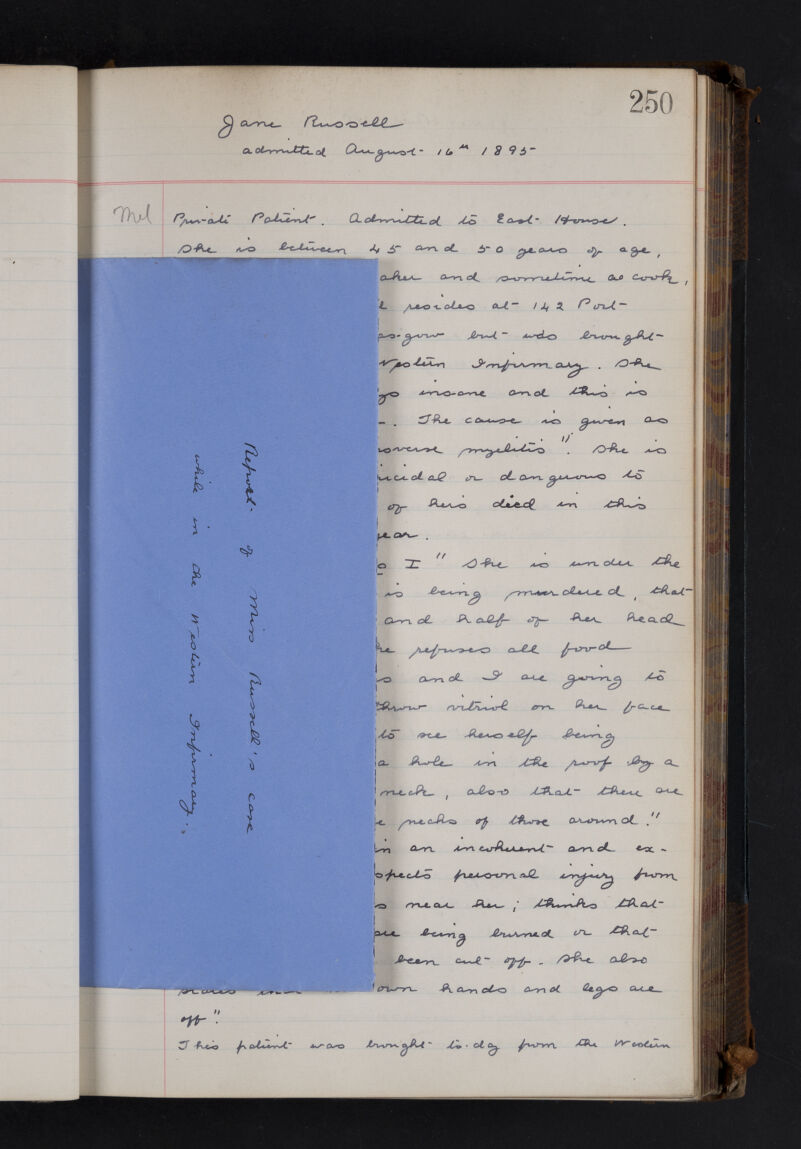 250
Jane Russell
admitted August 16th 1895
Mel
Private Patient. Admitted to East House.
She is between 45 and 50 years of age,
aker and sometime as cook,
resides at 142 Port-
gow but was brought
Western Infirmary. She
insane and this is
The cause is given as
sverse myelitis". She is
icidal or dangerous to
of hers died in this
ear.
I" She is under the
is being murdered, that
and half of her head
he refuses all food
s and I are going to
throw vitriol on her face
to see herself being
a hole in the roof by a
neck, also that there are
e necks of those around."
in an incoherent and ex-
spects personal injury from
s near her; thinks that
are being burned or that
been cut off. She also
states own hands and legs are
off".
This patient was brought to-day from the Western
Report of Miss Russell's case
while in the Western Infirmary.